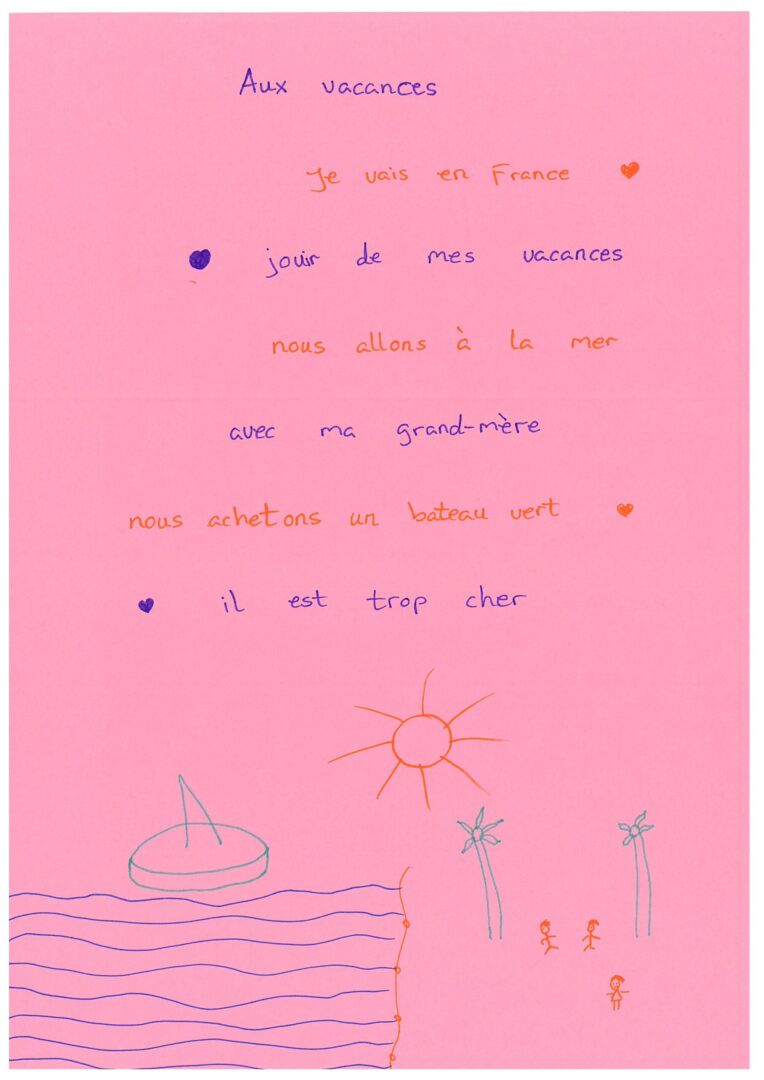 Aux vacances
Je vais en France
jouir de mes vacances
nous allons à la mer
avec ma grand-mère
nous achetons un bateau vert
il est trop cher